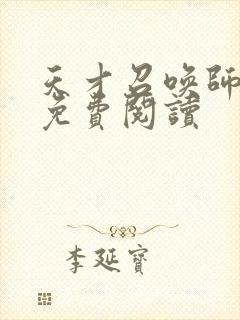 天才召喚師
免費閱讀
李延寶